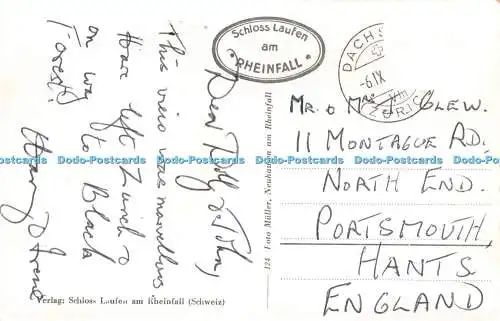 Schloss Laufen
am
RHEINFALL
DACHS
-6.IX
ZÜRICH
Dear Doll & John,
This view was marvellous
Have left Zurich &
on way to Black
Forest.
Harry & Irene
Mr. & Mrs J. Glew.
11 MONTAGUE RD.
NORTH END.
PORTSMOUTH,
HANTS
ENGLAND
124 Foto Müller, Neuhausen am Rheinfall
Verlag: Schloss Laufen am Rheinfall (Schweiz)
Dodo-Postcards Dodo-Postcards Dodo-Postcards Dodo-Postcards Dodo-Postcards Dodo-Postcards